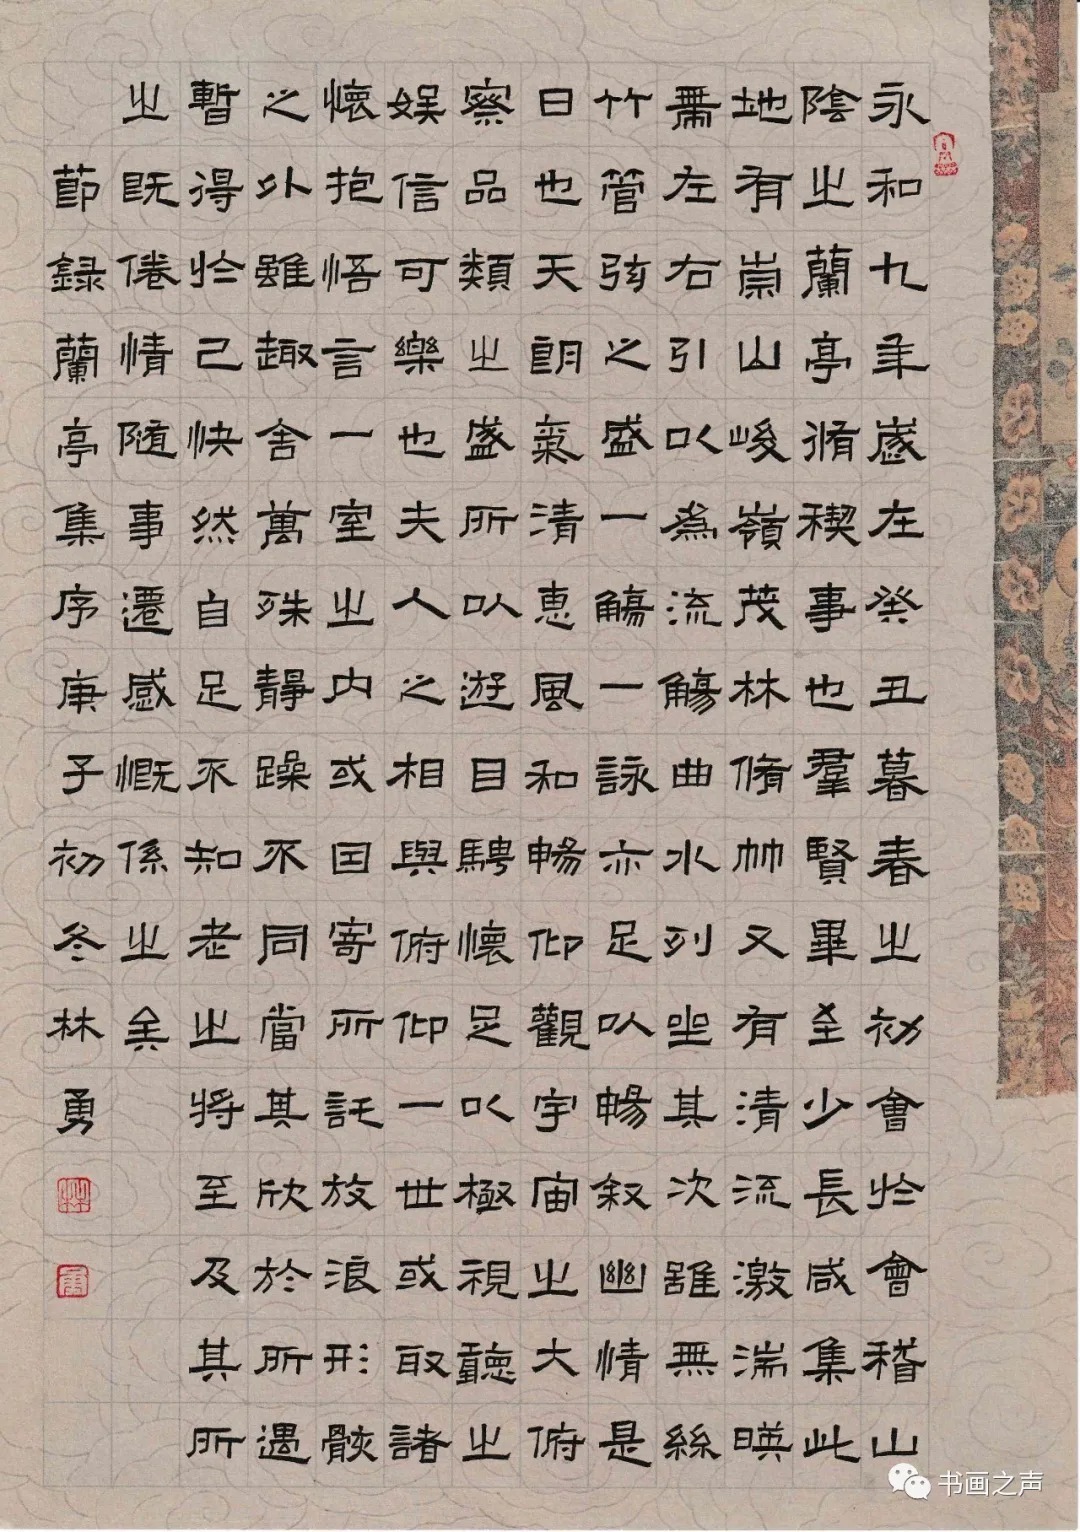 永和九年歲在癸丑暮春之初會於會稽山
陰之蘭亭脩禊事也羣賢畢至少長咸集此
地有崇山峻嶺茂林脩竹又有清流激湍暎
帶左右引以為流觴曲水列坐其次雖無絲
竹管弦之盛一觴一詠亦足以暢叙幽情是
日也天朗氣清惠風和暢仰觀宇宙之大俯
察品類之盛所以遊目騁懷足以極視聽之
娛信可樂也夫人之相與俯仰一世或取諸
懷抱悟言一室之內或因寄所託放浪形骸
之外雖趣舍萬殊靜躁不同當其欣於所遇
暫得於己快然自足不知老之將至及其所
之既倦情隨事遷感慨係之矣
節録蘭亭集序庚子初冬林勇
书画之声